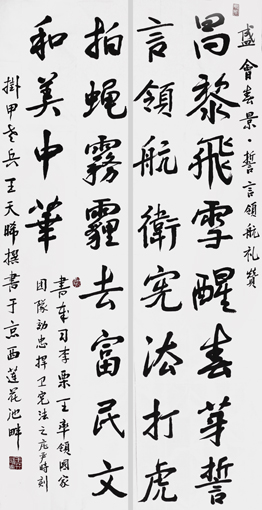 盛會春景·誓言領航礼贊
冐黎飛雪醒春芽誓
言領航衛宪法打虎
拍蝇霧霾去富民文
和美中華
書奉习李栗王率領國家
团隊効忠捍卫宪法之庒严時刻
掛甲老兵王天晞撰書于京西蓮花池畔